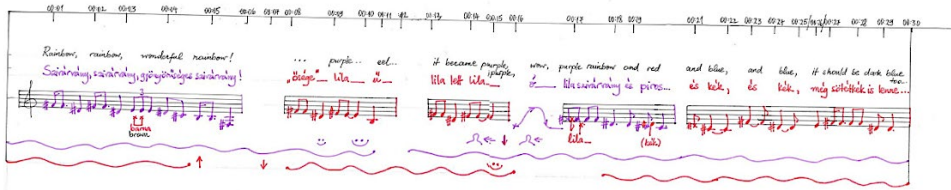 00:01 00:02 00:03 00:04 00:05 00:06 00:07 00:08 00:09 00:10 00:11 00:12 00:13 00:14 00:15 00:16 00:17 00:18 00:19 00:21 00:22 00:23 00:24 00:25 00:26 00:27 00:28 00:29 00:30
Rainbow, rainbow, wonderful rainbow! ... purple... eel... it became purple, purple, wow, purple rainbow and red and blue, and blue, it should be dark blue too...
Szivárvány, szivárvány, gyönyörűséges szivárvány! lila lila lett lila lila szivárvány és piros... és kék, és kék, még sötétkék is lenne...
3
barna
brown
lila
(kék)